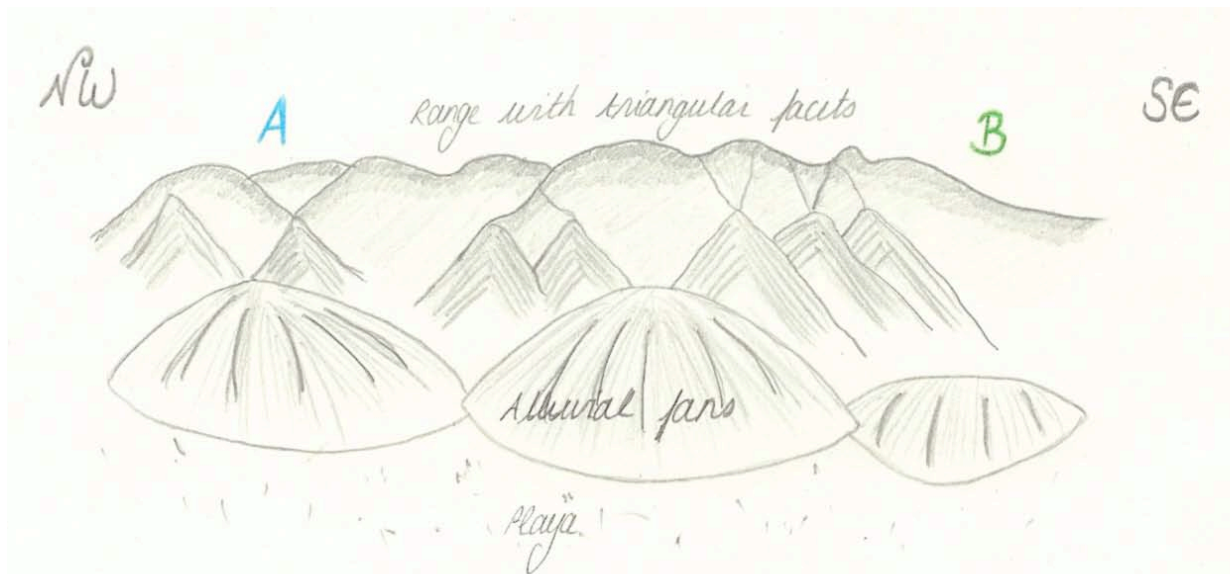 NW
SE
A
Range with triangular facets
B
Alluvial fans
Playa